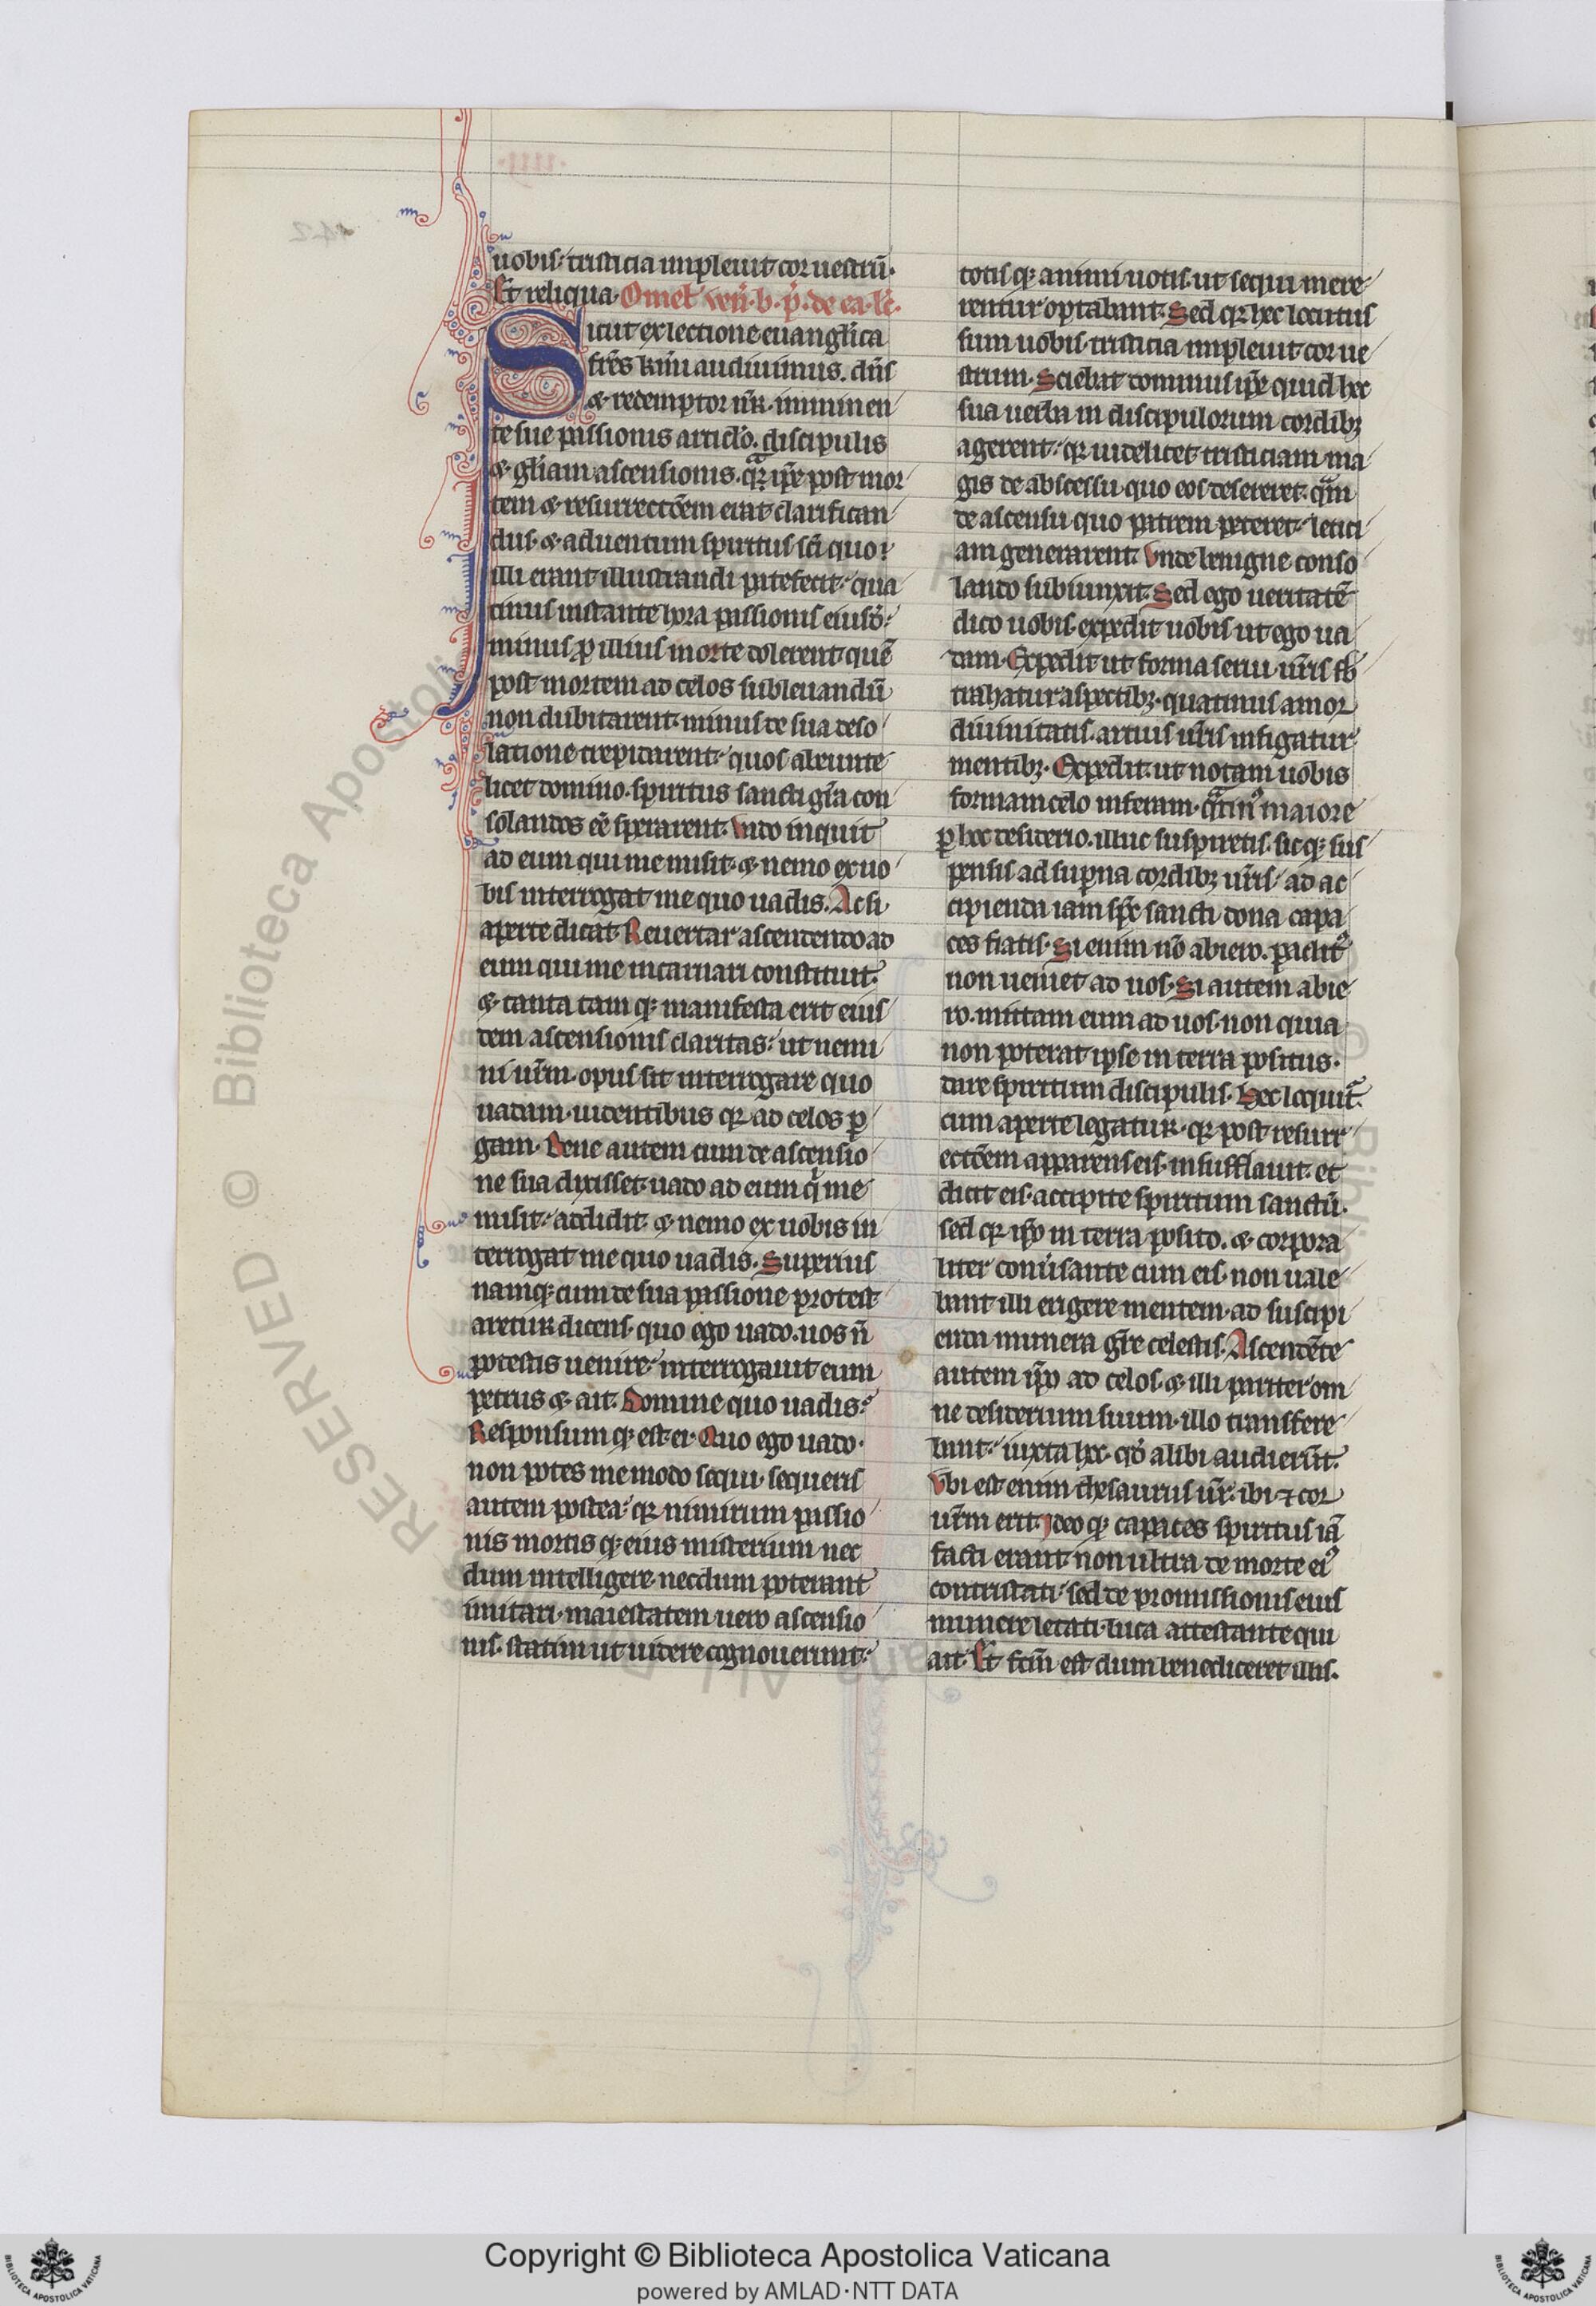 uobis: tristicia impleuit cor uestrū.
Et reliqua. Omel' ven̄. b. p̄. de ea. lc̄.
Sicut ex lectione euanglica
frēs km̄i audiuimus. dn̄s
& redemptor nr̄. imminen
te sue passionis articlo. discipulis
& gliam ascensionis. qua ipse post mor
tem & resurrectōem erat clarifican
dus. & aduentum spiritus sc̄i quo
illi erant illustrandi patefecit. qua
tinus instante hora passionis eius
minus p illius morte dolerent quē
post mortem ad celos subleuandū
non dubitarent. minus de sua deso
latione trepidarent. quos abeunte
licet domino. spiritus sancti gr̄a con
solandos eē sperarent. Vado inquit
ad eum qui me misit. & nemo ex uo
bis interrogat me quo uadis. Ac si
aperte dicat Reuertar ascendendo ad
eum qui me incarnari constituit.
& tanta tam q; manifesta erit eius
dem ascensionis claritas: ut nemi
ni ur̄m. opus sit interrogare quo
uadam. uidentibus qr ad celos p
gam. Bene autem cum de ascensio
ne sua dixisset uado ad eum qi me
misit. addidit. & nemo ex uobis in
terrogat me quo uadis. Superius
namq; cum de sua passione protest
aretur dicens. quo ego uado. uos n̄
potestis uenire. interrogauit eum
petrus & ait. Domine quo uadis.
Responsum q; est ei. Quo ego uado.
non potes me modo sequi. sequeris
autem postea. qr nimirum passio
nis mortis q; eius misterium nec
dum intelligere. necdum poterant
imitari. maiestatem uero ascensio
nis. statim ut uidere cognouerunt.
totis q; animi uotis. ut sequi mere
rentur optabant. Sed qr hec locutus
sum uobis. tristicia impleuit cor ue
strum. Sciebat dominus ipse quid hec
sua uerba in discipulorum cordib;
agerent. qr uidelicet tristiciam ma
gis de abscessu quo eos desereret. qm
de ascensu quo patrem peteret. leticī
am generarent. Vnde benigne conso
lando subiunxit. Sed ego ueritatē
dico uobis. expedit uobis ut ego ua
dam. Expedit ut forma serui. ur̄is sb
trahatur aspectib;. quatinus amor
diuinitatis. artius ur̄is infigatur
mentib;. Expedit. ut notam uobis
formam celo inferam. qatin9 maiore
p hec desiderio. illuc suspiretis. sic q; sus
pensis ad sup̄na cordib; ur̄is. ad ac
cipienda iam sp̄c sancti dona capa
ces fiatis. Si enim nō abiero. paclit9
non ueniet ad uos. Si autem abie
ro. mittam eum ad uos. non quia
non poterat ipse in terra positus.
dare spiritum discipulis. Hec loquit~.
cum aperte legatur. qr post resurr
ectōem apparens eis. insufflauit. et
dicit eis. accipite spiritum sanctū.
sed qr ip̄o in terra posito. & corpora
liter conuersante cum eis. non uale
bant illi erigere mentem. ad suscipi
enda munera gr̄e celestis. Ascendēte
autem ip̄o ad celos. & illi pariter om
ne desiderium suum. illo transfere
bant. iuxta hec. qd alibi audierūt.
Vbi est enim thesaurus ur̄. ibi & cor
ur̄m erit. Ideo q; capaces spiritus iā
facti erant. non ultra de morte ei9
contristati. sed de promissionis eius
munere letati. luca attestante qui
ait. Et fcm̄ est dum benediceret illis.
Copyright © Biblioteca Apostolica Vaticana
powered by AMLAD·NTT DATA